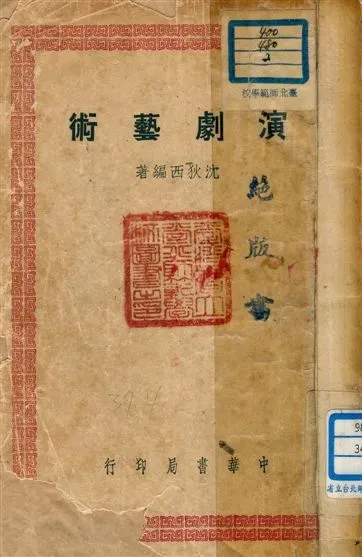 400
480
2
臺北師範學校
演劇藝術
沈狄西編著
絕版書
中華書局印行
省立台北師